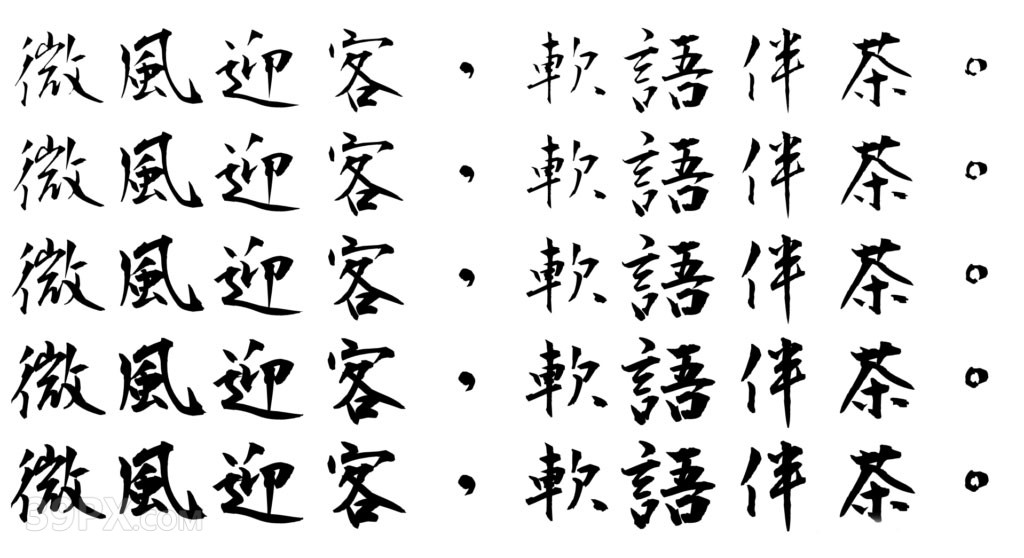 微風迎客，軟語伴茶。
微風迎客，軟語伴茶。
微風迎客，軟語伴茶。
微風迎客，軟語伴茶。
微風迎客，軟語伴茶。
39PX.com